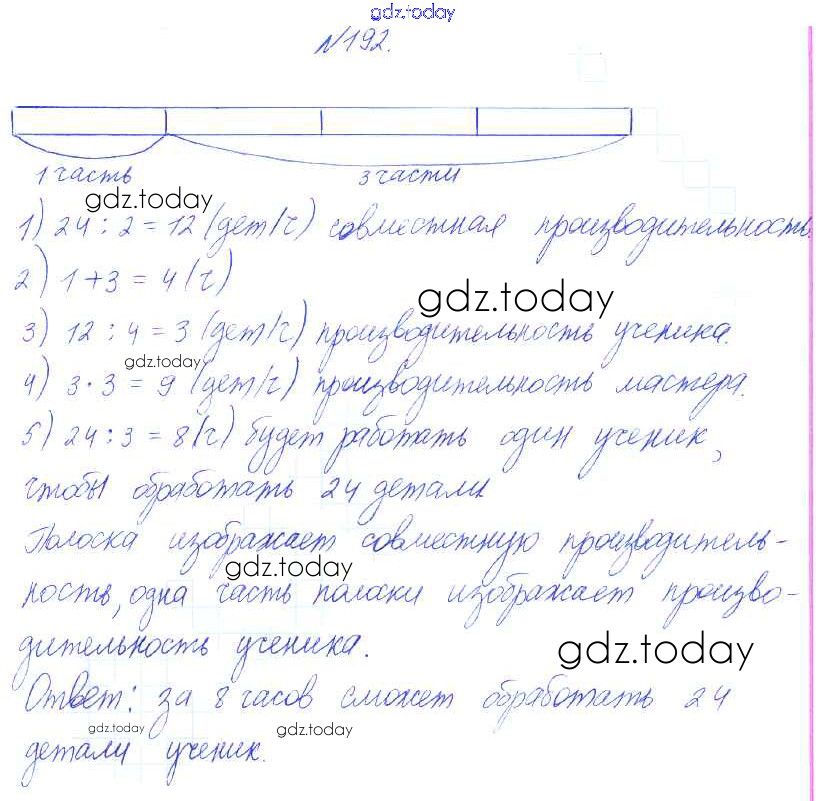 gdz.today
№192.
1 часть 3 части
gdz.today
1) 24 : 2 = 12 (дет/ч) совместная производительность.
2) 1 + 3 = 4 (ч)
gdz.today
3) 12 : 4 = 3 (дет/ч) производительность ученика.
gdz.today
4) 3 · 3 = 9 (дет/ч) производительность мастера.
5) 24 : 3 = 8 (ч) будет работать один ученик,
чтобы обработать 24 детали
Полоска изображает совместную производитель-
gdz.today
ность, одна часть полоски изображает произво-
дительность ученика.
gdz.today
Ответ: за 8 часов сможет обработать 24
gdz.today gdz.today
детали ученик.